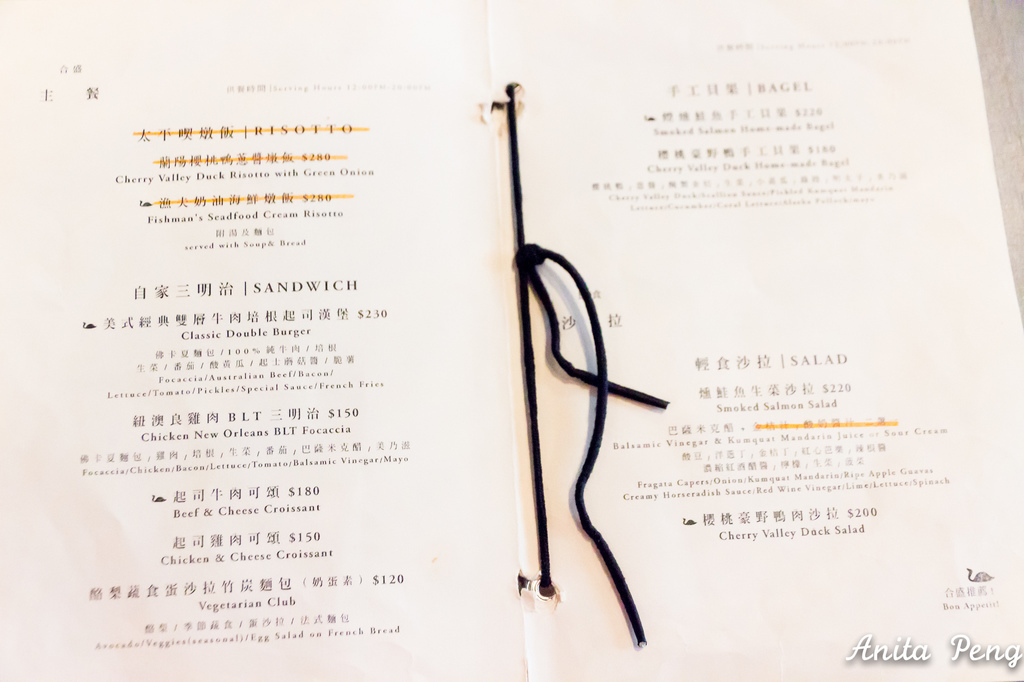 合盛
主餐
供餐時間 | Serving Hours
太平喫燉飯 | RISOTTO
蘭陽櫻桃鴨蔥醬燉飯 $280
Cherry Valley Duck Risotto with Green Onion
漁夫奶油海鮮燉飯 $280
Fishman's Seadfood Cream Risotto
附湯及麵包
served with Soup& Bread
自家三明治 | SANDWICH
美式經典雙層牛肉培根起司漢堡 $230
Classic Double Burger
佛卡夏麵包/100%純牛肉/培根
生菜/番茄/酸黃瓜/起士蘑菇醬/脆薯
Focaccia/Australian Beef/Bacon/
Lettuce/Tomato/Pickles/Special Sauce/French Fries
紐澳良雞肉BLT三明治 $150
Chicken New Orleans BLT Focaccia
佛卡夏麵包/雞肉/培根/生菜/番茄/巴薩米克醋/美乃滋
Focaccia/Chicken/Bacon/Lettuce/Tomato/Balsamic Vinegar/Mayo
起司牛肉可頌 $180
Beef & Cheese Croissant
起司雞肉可頌 $150
Chicken & Cheese Croissant
酪梨蔬食蛋沙拉竹炭麵包（奶蛋素）$120
Vegetarian Club
酪梨/季節蔬食/蛋沙拉/法式麵包
Avocado/Veggies(seasonal)/Egg Salad on French Bread
供餐時間 | Serving Hours
手工貝果 | BAGEL
煙燻鮭魚手工貝果 $220
Smoked Salmon Home-made Bagel
櫻桃豪野鴨手工貝果 $180
Cherry Valley Duck Home-made Bagel
Cherry Valley Duck/Scallion Sauce/Pickled Kumquat Mandarin
Lettuce/Cucumber/Coral Lettuce/Alaska Pollock/mayo
食
沙拉
輕食沙拉 | SALAD
燻鮭魚生菜沙拉 $220
Smoked Salmon Salad
巴薩米克醋
Balsamic Vinegar & Kumquat Mandarin Juice or Sour Cream
酸豆/洋蔥丁/金桔丁/紅心芭樂/辣根醬
濃縮紅酒醋醬/檸檬/生菜/菠菜
Fragata Capers/Onion/Kumquat Mandarin/Ripe Apple Guavas
Creamy Horseradish Sauce/Red Wine Vinegar/Lime/Lettuce/Spinach
櫻桃豪野鴨肉沙拉 $200
Cherry Valley Duck Salad
合盛推薦！
Bon Appetit!
Anita Peng